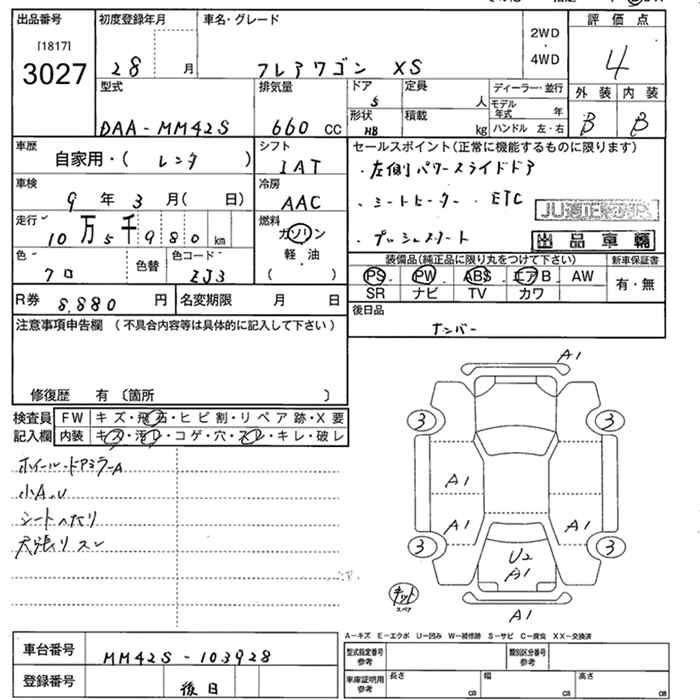 出品番号
[1817]
3027
初度登録年月
28 月
車名・グレード
フレアワゴン XS
2WD
・
4WD
評価点
4
外装 内装
B B
型式
DAA-MM42S
排気量
660 CC
ドア
5
形状
HB
定員
人
積載
kg
ディーラー・並行
モデル年式 年
ハンドル 左・右
車歴
自家用・( レンタ )
シフト
IAT
車検
9 年 3 月( 日)
冷房
AAC
走行
10万5千980km
燃料
ガソリン
軽・油
( )
色
クロ
色替
色コード
ZJ3
R券 8,880 円
名変期限 月 日
セールスポイント(正常に機能するものに限ります)
・左側パワースライドドア
・シートヒーター・ETC
・プッシュスタート
JU適正
出品車輌
装備品(純正品に限り丸をつけて下さい)
新車保証書
PS PW ABS エアB AW
有・無
SR ナビ TV カワ
後日品
ナンバー
注意事項申告欄(不具合内容等は具体的に記入して下さい)
修復歴 有 〔箇所 〕
検査員
記入欄
FW キズ・飛石・ヒビ割・リペア跡・X要
内装 キズ・汚レ・コゲ・穴・スレ・キレ・破レ
ホイール・ドアミラーA
小A.U
シートヘタリ
天張リスレ
A1
3
3
A1
A1
A1
3
3
U2
A1
キット
スペア
A1
A-キズ E-エクボ U-凹み W-補修跡 S-サビ C-腐食 XX-交換済
車台番号
MM42S-103928
登録番号
後日
型式指定番号
参考
類別区分番号
参考
車庫証明用
参考
長さ
cm
幅
cm
高さ
cm